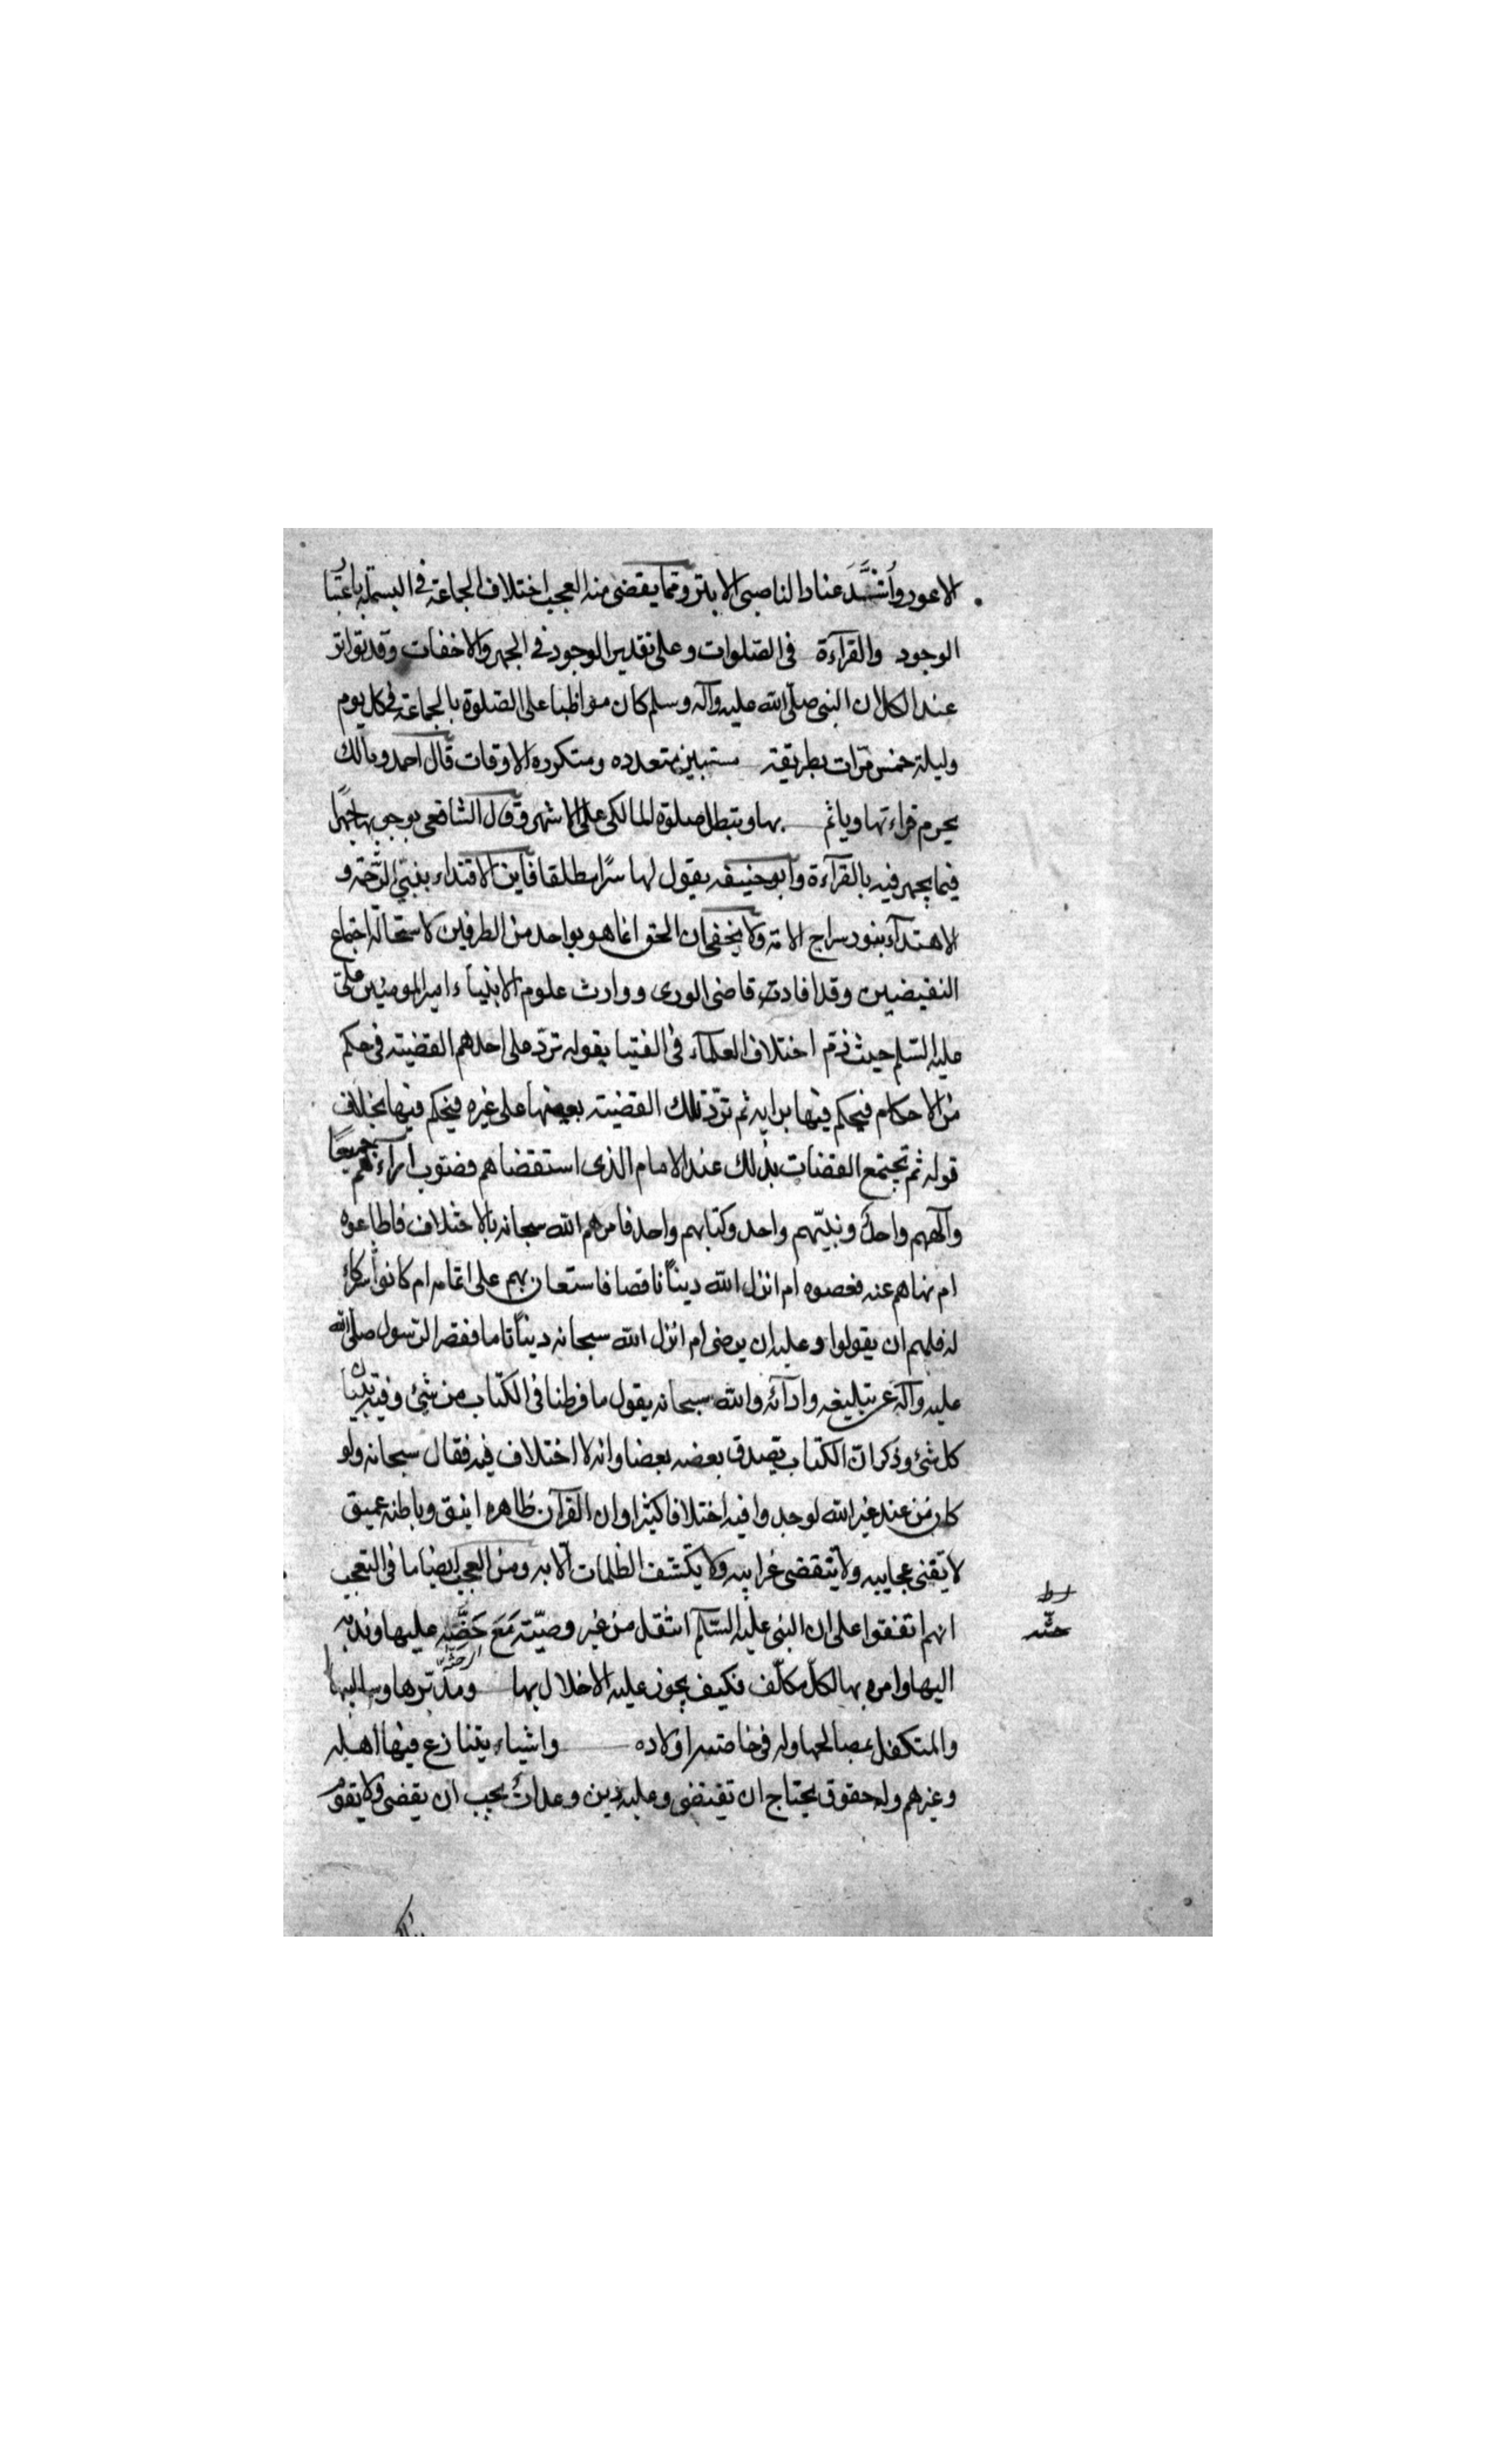 الاعور وأشدّ عناد الناصبى الابتر ومما يقضى منه العجب اختلاف الجماعة فى البسملة باعتبار
الوجود والقرآءة فى الصلوات وعلى تقدير الوجود فى الجهر والاخفات وقد تواتر
عند الكل ان النبى صلى الله عليه وآله وسلم كان مواظبا على الصلوة بالجماعة فى كل يوم
وليلة خمس مرات بطريقة مستبين متعدده ومتكرره الاوقات قال احمد ومالك
يحرم قراءتها وياثم بها وتبطل صلوة المالكى على الاشهر وقول الشافعى بوجوبها جهرا
فيما يجهر فيه بالقرآءة وابو حنيفه يقول لها سرّا مطلقا فاين الاقتداء بنبىّ الرحمة و
الاهتدآء بنور سراج الامة ولا يخفى ان الحق انما هو بواحد من الطرفين لاستحالة اجتماع
النقيضين وقد افادت قاضى الورى ووارث علوم الانبياء امير المومنين على
عليه السلم حيث ذم اختلاف العلمآء فى الفتيا بقوله ترد على احدهم القضية فى حكم
من الاحكام فيحكم فيها برايه ثم ترد تلك القضية بعينها على غيره فيحكم فيها بخلاف
قوله ثم تجتمع القضات بذلك عند الامام الذى استقضاهم فصوب ارآءهم جميعا
وآلههم واحد ونبيّهم واحد وكتابهم واحد فامرهم الله سبحانه بالاختلاف فاطاعوه
ام نهاهم عنه فعصوه ام انزل الله دينًا ناقصا فاستعان بهم على اتمامه ام كانوا شركاء
له فلهم ان يقولوا وعليه ان يرضى ام انزل الله سبحانه دينًا تاما فقصر الرسول صلى الله
عليه وآله عن تبليغه وادآئه والله سبحانه يقول ما فرطنا فى الكتاب من شئ وفيه تبيان
كل شئ وذكر ان الكتاب يصدق بعضه بعضا وانه لا اختلاف فيه فقال سبحانه ولو
كان من عند غير الله لوجدوا فيه اختلافا كثيرا وان القرآن ظاهره انيق وباطنه عميق
لا تفنى عجايبه ولا تنقضى غرايبه ولا يكشف الظلمات الا به ومن العجب ايضا ما فى التعجب
انهم اتفقوا على ان النبى عليه السلم انتقل من غير وصيّة مَعَ حَضِّه عليها وندبه
اليها وامره بها لكل مكلّف فكيف يجوز عليه الاخلال بها ومدبرها
والمتكفل بمصالحها وله فى خاصته اولاده واشياء يتنازع فيها اهله
وغيرهم وله حقوق يحتاج ان تقتضى وعليه دين وعدات يجب ان يقضى ولا يقوم